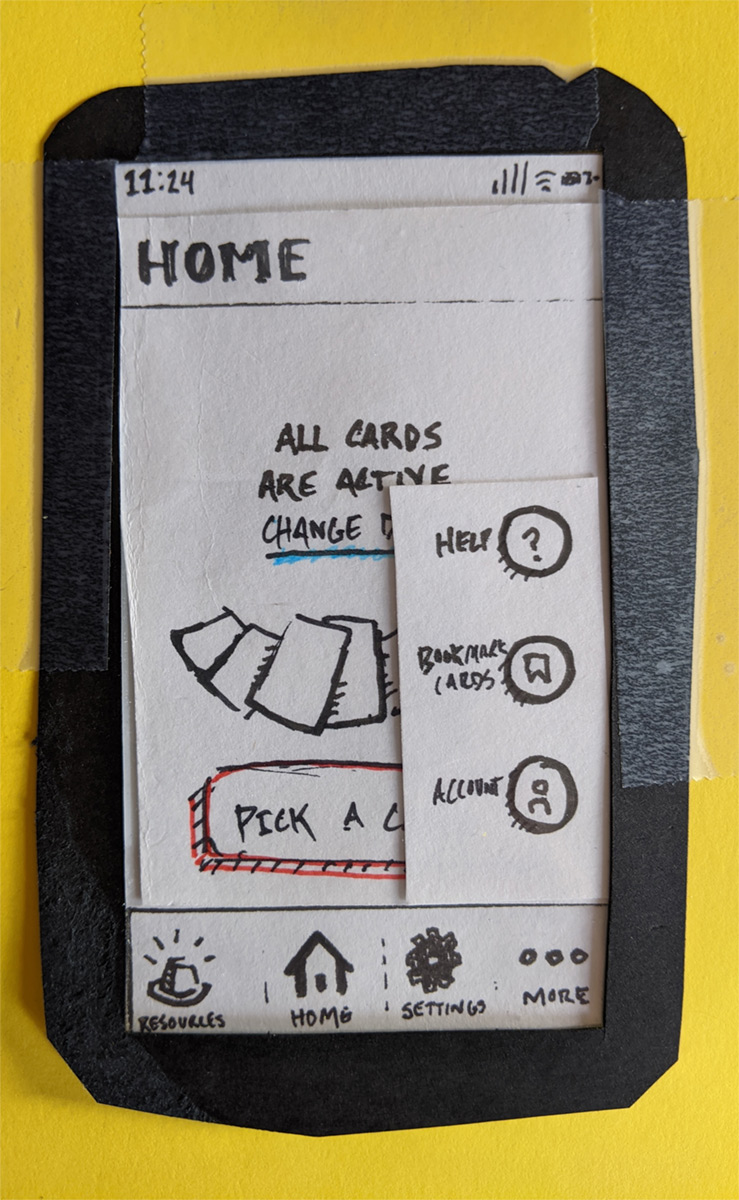 11:24
HOME
ALL CARDS
ARE ACTIVE
CHANGE
HELP ?
BOOKMARK
CARDS
ACCOUNT
PICK A C
RESOURCES
HOME
SETTINGS
MORE